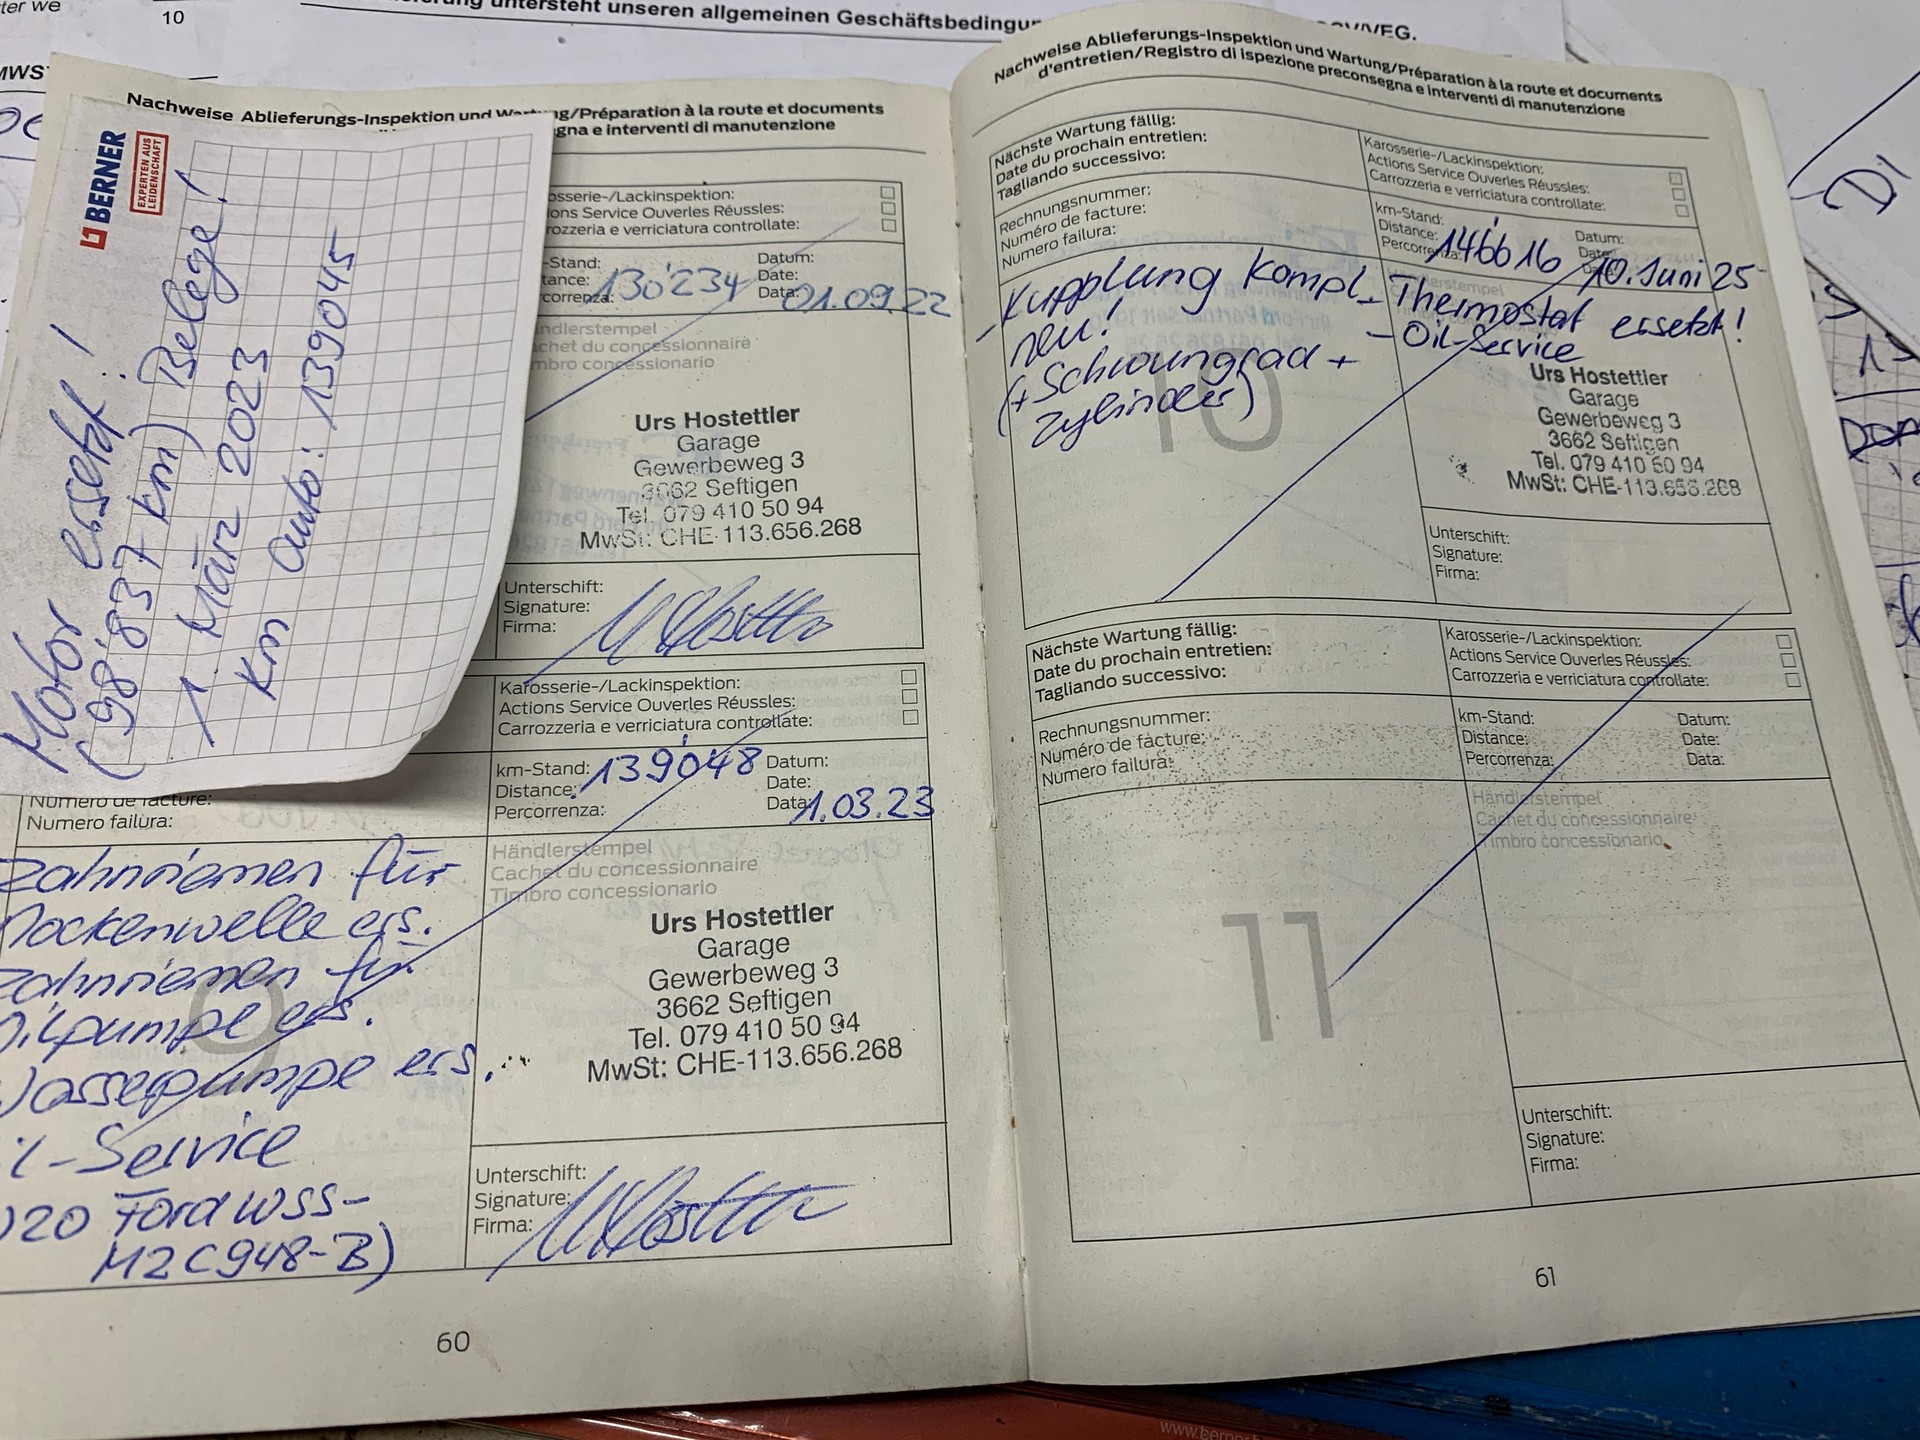 10
untersteht unseren allgemeinen Geschäftsbedingu
Nachweise Ablieferungs-Inspektion und Wartung/Préparation à la route et documents
gna e interventi di manutenzione
BERNER
EXPERTEN AUS
LEIDENSCHAFT
Motor ersetzt!
(98'837 km) Belege!
1. März 2023
km Auto: 139045
osserie-/Lackinspektion:
ons Service Ouverles Réussles:
rozzeria e verriciatura controllate:
-Stand:
tance:
correnza:
130'234
Datum:
Date:
Data:
01.09.22
ndlerstempel
achet du concessionnaire
mbro concessionario
Urs Hostettler
Garage
Gewerbeweg 3
3662 Seftigen
Tel. 079 410 50 94
MwSt: CHE-113.656.268
Unterschift:
Signature:
Firma:
Karosserie-/Lackinspektion:
Actions Service Ouverles Réussles:
Carrozzeria e verriciatura controllate:
Numéro de facture:
Numero failura:
km-Stand:
Distance:
Percorrenza:
139'048
Datum:
Date:
Data:
1.03.23
Zahnriemen für
Nockenwelle ers.
Zahnriemen für
Oilpumpe ers.
Wasserpumpe ers.
il-Service
20 Ford WSS-
M2C948-B)
9
Händlerstempel
Cachet du concessionnaire
Timbro concessionario
Urs Hostettler
Garage
Gewerbeweg 3
3662 Seftigen
Tel. 079 410 50 94
MwSt: CHE-113.656.268
Unterschift:
Signature:
Firma:
60
Nachweise Ablieferungs-Inspektion und Wartung/Préparation à la route et documents
d'entretien/Registro di ispezione preconsegna e interventi di manutenzione
Nächste Wartung fällig:
Date du prochain entretien:
Tagliando successivo:
Karosserie-/Lackinspektion:
Actions Service Ouverles Réussles:
Carrozzeria e verriciatura controllate:
Rechnungsnummer:
Numéro de facture:
Numero failura:
km-Stand:
Distance:
Percorrenza:
146'616
Datum:
Date:
Data:
10. Juni 25
- Kupplung kompl.
neu!
(+Schwungrad +
Zylinder)
10
- Thermostat ersetzt!
- Oil-Service
Urs Hostettler
Garage
Gewerbeweg 3
3662 Seftigen
Tel. 079 410 50 94
MwSt: CHE-113.656.268
Unterschift:
Signature:
Firma:
Nächste Wartung fällig:
Date du prochain entretien:
Tagliando successivo:
Karosserie-/Lackinspektion:
Actions Service Ouverles Réussles:
Carrozzeria e verriciatura controllate:
Rechnungsnummer:
Numéro de facture:
Numero failura:
km-Stand:
Distance:
Percorrenza:
Datum:
Date:
Data:
Händlerstempel
Cachet du concessionnaire
Timbro concessionario
11
Unterschift:
Signature:
Firma:
61